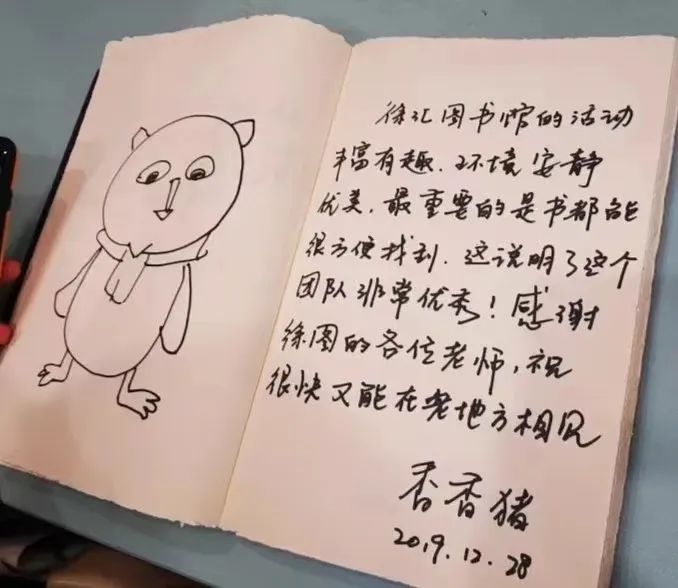 徐汇图书馆的活动
丰富有趣.环境安静
优美.最重要的是书都能
很方便找到.这说明了这个
团队非常优秀!感谢
徐图的各位老师,祝
很快又能在老地方相见
香香猪
2019.12.28